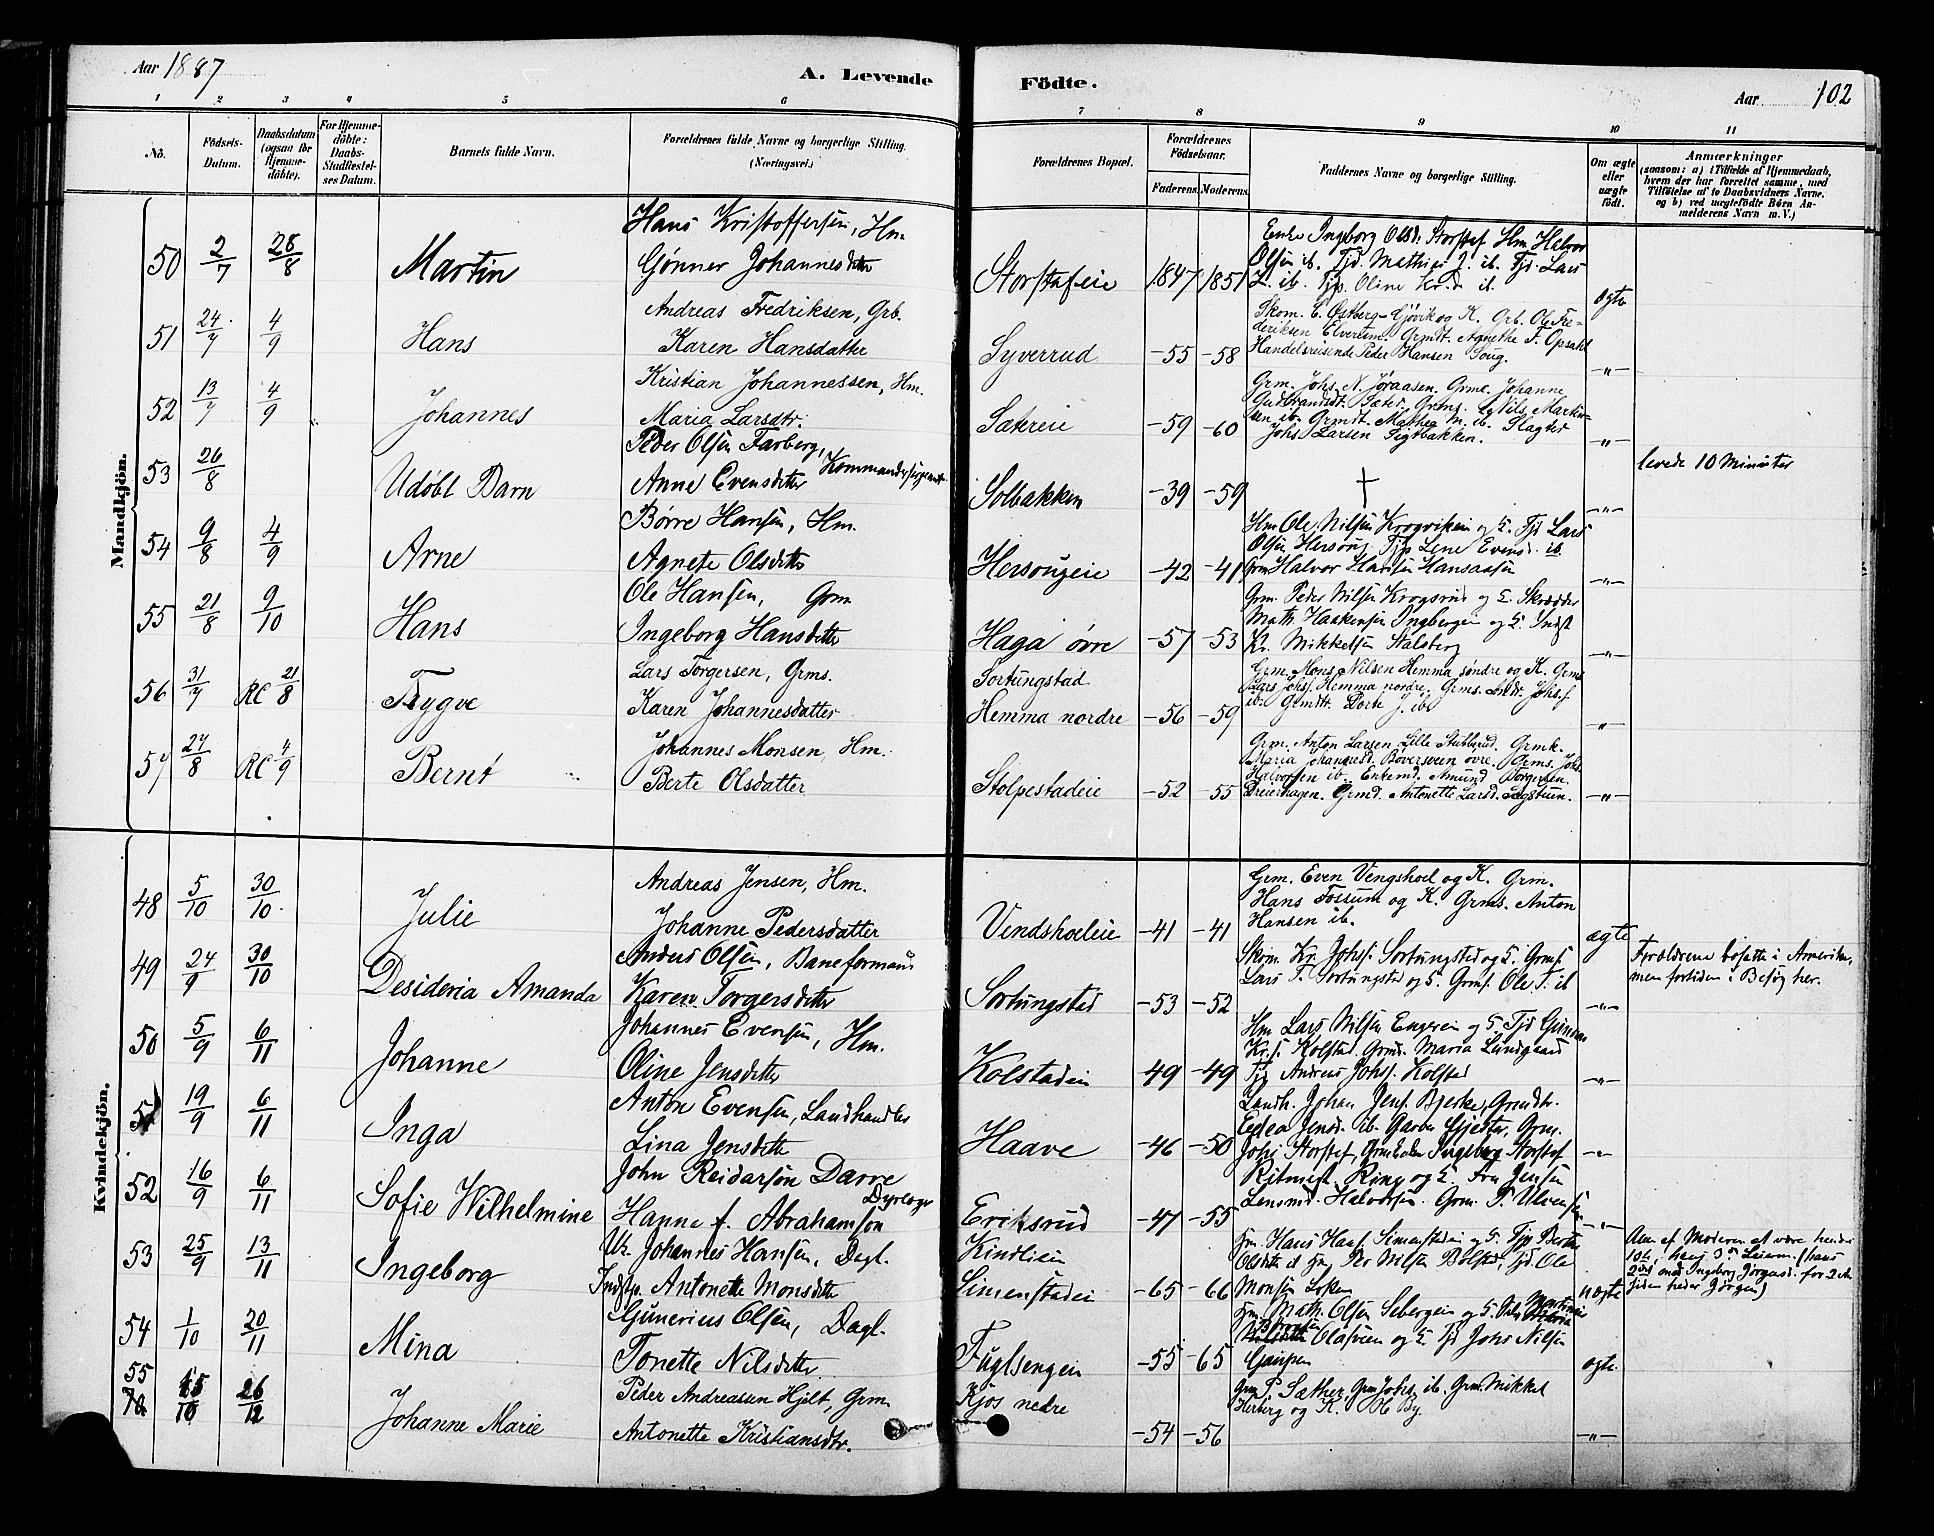 Aar 1887
A. Levende Födte.
Aar 102
1 2 3 4 5 6 7 8 9 10 11
No.
Födsels-Datum.
Daabsdatum (ogsaa for Hjemme-döbte).
For Hjemme-döbte: Daabs-Stadfæstel-ses Datum.
Barnets fulde Navn.
Forældrenes fulde Navne og borgerlige Stilling. (Næringsvei.)
Forældrenes Bopæl.
Forældrenes Födselsaar.
Faderens. Moderens.
Faddernes Navne og borgerlige Stilling.
Om ægte eller uægte födt.
Anmærkninger
(saasom: a) i Tilfælde af Hjemmedaab,
hvem der har forrettet samme, med
Tilföielse af to Daabsvidners Navne.
og b) ved uægtefödte Börn An-
melderens Navn m. V.)
Mandkjön.
50 2/7 28/8 Martin
Hans Kristoffersen, Hm.
Gønner Johannesdtter
Storstafeie 1847 1851
Enke Ingborg Olsd. Storstef Hm Halvor
Olsen ib. Tjd. Mathias J. ib. Tjd. Lars
L. ib. Tjp. Oline Kr.d. ib.
ægte
51 24/7 4/9 Hans
Andreas Fredriksen, Grb.
Karen Hansdatter
Syverrud -55 -58
Skom. E. Østberg-Gjövik og K. Grb. Ole Fre-
deriksen Elvertun. Grmdt. Agnethe F. Opsahl
Handelsreisende Peder Hansen Soug.
-"-
52 13/7 4/9 Johannes
Kristian Johannessen, Hm.
Maria Larsdtr.
Sætreie -59 -60
Grm. Johs. N. Jøraasen. Grme. Johanne
Gudbrandsdt. Sæter. Grmg. Nils Martin-
sen ib. Grmdt. Mathea M. ib. Slagter
Johs Larsen Sigtbakken.
-"-
53 26/8 Udøbt Barn
Peder Olsen Farberg, Kommandersergeant
Anne Evensdtter
Solbakken -39 -59
+
-"-
levede 10 Minuter
54 9/8 4/9 Arne
Børre Hansen, Hm.
Agnete Olsdtter
Hersougeie -42 -41
Hm Ole Nilsen Krogviken og K. Tjd Lars
Olsen Hersoug Tjp Lene Evensd. ib.
Grm Halvor Hansen Hansaasen
-"-
55 21/8 9/10 Hans
Ole Hansen, Grm
Ingeborg Hansdtter
Haga øvre -57 -53
Grm. Peder Nilsen Krogsrud og K. Skrædder
Math Haakensen Ingbergeie og K. Indst
Kr. Mikkelsen Stalsberg
-"-
56 31/7 RC 21/8 Trygve
Lars Torgersen, Grms.
Karen Johannesdatter
Sortungstad
Hemma nordre -56 -59
Grm. Mons Nilsen Hemma søndre og K. Grms
Lars Johs. Hemma nordre. Grms. Johs.
ib. Grmdtt Dorte J. ib.
"
57 27/8 RC 4/9 Bernt
Johannes Monsen, Hm.
Berte Olsdatter
Stolpestadeie -52 -55
Grm. Anton Larsen Lille Stubberud. Grmk.
Maria Johannesd. Böverseen øvre. Grms. Johs.
Halvorsen ib. Enkemd. Amund Torgersen
Dreierhagen. Grmd. Antonette Larsd. Sagstuen.
-"-
Kvindekjön.
48 5/10 30/10 Julie
Andreas Jensen, Hm.
Johanne Pedersdatter
Vendshoeleie -41 -41
Grm. Even Vengshoel og K. Grm.
Hans Fossum og K. Grms. Anton
Hansen ib.
ægte
49 24/9 30/10 Desideria Amanda
Anders Olsen, Baneformand
Karen Torgersdtter
Sortungstad -53 -52
Skom. Kr. Johs. Sortungstad og K. Grms.
Lars T. Sortungstad og K. Grms. Ole T. ib
-"-
Forældrene bosatte i Amerika,
men fortiden i Besøg her.
50 5/9 6/11 Johanne
Johannes Evensen, Hm.
Oline Jensdtter
Kolstadeie 49 -49
Hm Lars Nilsen Engereie og K. Tjd Gunnar
Kr.s. Kolstad. Grmd. Maria Lundgaard
Tjg Andreas Johs. Kolstad
-"-
51 19/9 6/11 Inga
Anton Evensen, Landhandler
Lina Jensdtter
Haave -46 -50
Landh. Johan Jens. Bjerke, Grmdtr.
Eedea Jensd. ib. Garver Gjester, Grm.
Johs Storstef, Grmenken Ingeborg Storstef
-"-
52 16/9 6/11 Sofie Wilhelmine
John Reidarson Darre Dyrlæge
Hanne f. Abrahamson
Eriksrud -47 -55
Ritmest. Ring og K. Fru Jensen
Lensmd. Halvorsen. Grm. P. Ulvensen
-"-
53 25/9 13/11 Ingeborg
Uk. Johannes Hansen, Dagl.
Indstp. Antonette Monsdtter
Kindlien
Simenstadei -65 -66
Hm. Hans Hans. Simenstadeie og K. Tjp Berthe
Olsdtte Hm Per Nilsen Bolstad, Tjd Ole
Monsen Loken
uægte
Anm. af Moderen at være hendes
1ste, hans 3die Leierm. (hans
2det med Ingeborg Jørgensd. for 2 Aar
siden heder Jørgen)
54 1/10 20/11 Mina
Gunerius Olsen, Dagl.
Tonette Nilsdtter
Fuglsengen -55 -65
Hm Math. Olsen Sebergeie og K.
Olafsveen og K. Tjd Johs Nilsen
Gaupen
ægte
55 15/10 26/12 Johanne Marie
Peder Andreasen Hjelt, Grm.
Antonette Kristiansdtr.
Kjos nedre -54 -56
Grm P. Sæther, Grm Johs ib. Grm. Mikkel
Herberg og K. By.
-"-